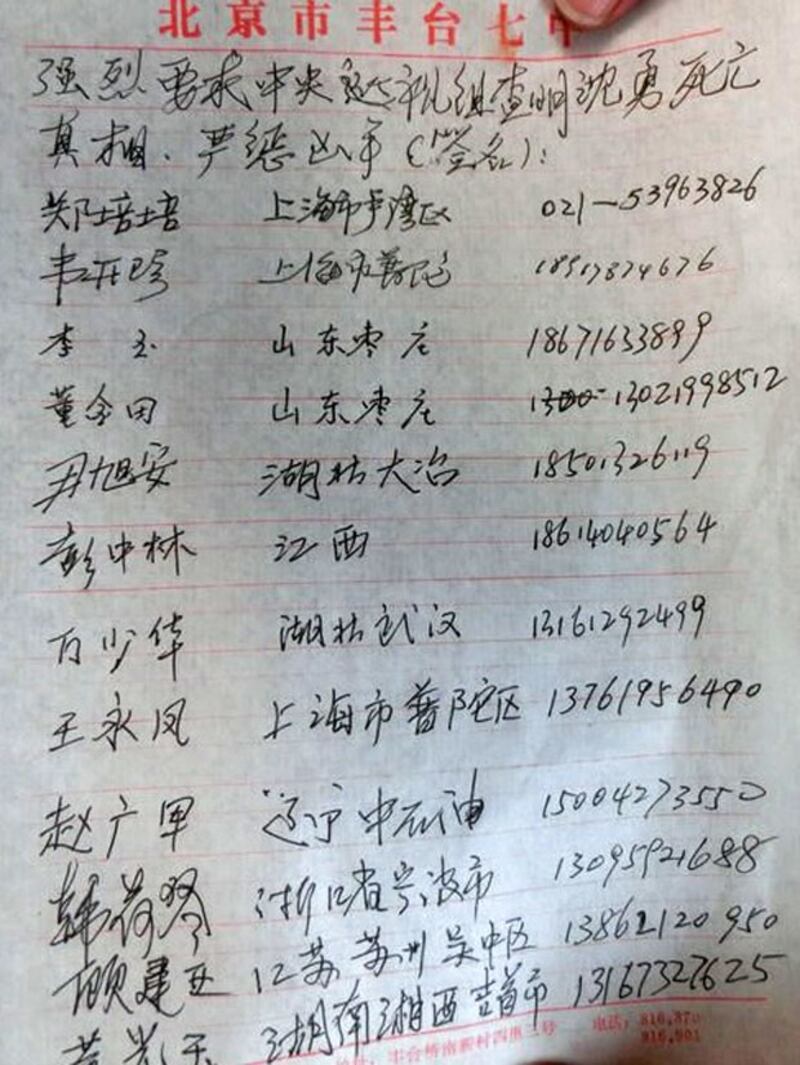 北京市丰台七中
强烈要求中央巡视组查明沈勇死亡
真相、严惩凶手(签名):
郑培培 上海市卢湾区 021-53963826
韦开珍 上海市普陀 18917874676
李玉 山东枣庄 18671633899
董令田 山东枣庄 13021998512
尹旭安 湖北大冶 18501326119
彭中林 江西 18614040564
万少华 湖北武汉 13161292499
王永凤 上海市普陀区 13761956490
赵广军 辽宁中石油 15004273550
韩荷琴 浙江省宁波市 13095921688
顾建 江苏苏州吴中区 13862120950
湖南湘西吉首市 13167327625
丰台桥南新村四里二号 电话:816,870
916,901